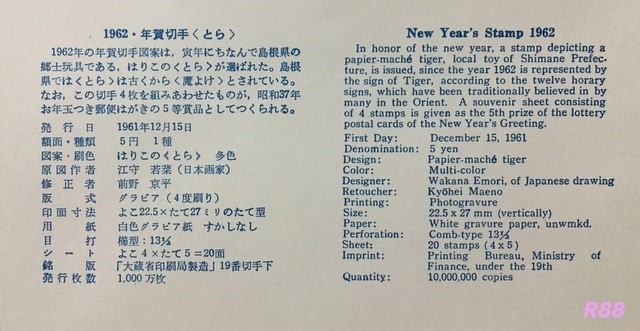 1962・年賀切手〈とら〉
1962年の年賀切手図案は、寅年にちなんで島根県の
郷土玩具である、はりこの〈とら〉が選ばれた。島根
県では〈とら〉は古くから〈魔よけ〉とされている。
なお、この切手4枚を組みあわせたものが、昭和37年
お年玉つき郵便はがきの5等賞品としてつくられる。
発行日 1961年12月15日
額面・種類 5円 1種
図案・刷色 はりこの〈とら〉 多色
原図作者 江守 若菜(日本画家)
修正者 前野 京平
版式 グラビア(4度刷り)
印面寸法 よこ22.5×たて27ミリのたて型
用紙 白色グラビア紙 すかしなし
目打 櫛型:13½
シート よこ4×たて5=20面
銘版 「大蔵省印刷局製造」19番切手下
発行枚数 1,000万枚
New Year's Stamp 1962
In honor of the new year, a stamp depicting a
papier-maché tiger, local toy of Shimane Prefec-
ture, is issued, since the year 1962 is represented
by the sign of Tiger, according to the twelve horary
signs, which have been traditionally believed in by
many in the Orient. A souvenir sheet consisting
of 4 stamps is given as the 5th prize of the lottery
postal cards of the New Year's Greeting.
First Day: December 15, 1961
Denomination: 5 yen
Design: Papier-maché tiger
Color: Multi-color
Designer: Wakana Emori, of Japanese drawing
Retoucher: Kyōhei Maeno
Printing: Photogravure
Size: 22.5 x 27 mm (vertically)
Paper: White gravure paper, unwmkd.
Perforation: Comb-type 13½
Sheet: 20 stamps (4 x 5)
Imprint: Printing Bureau, Ministry of
Finance, under the 19th
Quantity: 10,000,000 copies
R88